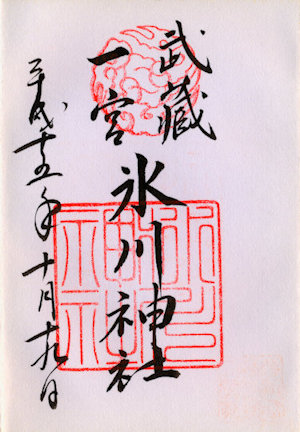 武蔵
一宮
氷川神社
平成十五年十月十九日